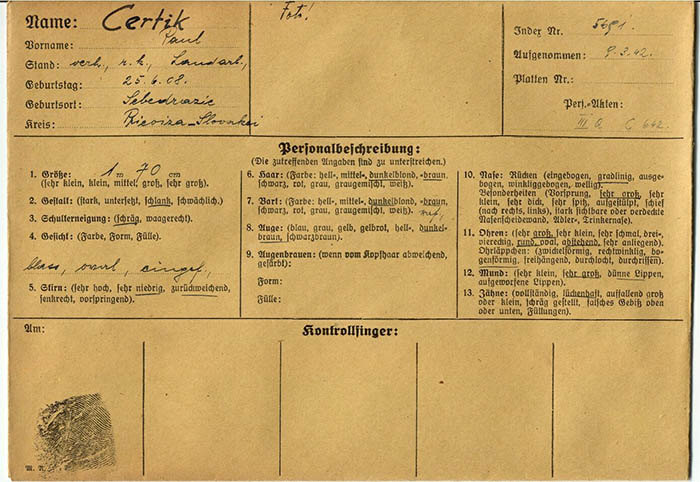 Name: Certik
Vorname: Paul
Stand: verh., r.k., Landarb.,
Geburtstag: 25.6.08.
Geburtsort: Sebedrazie
Kreis: Slovakei
Foto!
Index Nr. 5691.
Aufgenommen: 9.3.42.
Platten Nr.:
Pers.-Akten:
III a C 642.
Personalbeschreibung:
(Die zutreffenden Angaben sind zu unterstreichen.)
1. Größe: 1 m 70 cm
(sehr klein, klein, mittel, groß, sehr groß).
2. Gestalt: (stark, untersetzt, schlank, schwächlich).
3. Schulterneigung: (schräg, waagerecht).
4. Gesicht: (Farbe, Form, Fülle).
blass, oval, eingef.,
5. Stirn: (sehr hoch, sehr niedrig, zurückweichend,
senkrecht, vorspringend).
6. Haar: (Farbe: hell-, mittel-, dunkelblond, -braun,
schwarz, rot, grau, graugemischt, weiß).
7. Bart: (Farbe: hell-, mittel-, dunkelblond, -braun,
schwarz, rot, grau, graugemischt, weiß).
8. Auge: (blau, grau, gelb, gelbrot, hell-, dunkel-
braun, schwarzbraun).
9. Augenbrauen: (wenn vom Kopfhaar abweichend,
gefärbt):
Form:
Fülle:
10. Nase: Rücken (eingebogen, gradlinig, ausge-
bogen, winkliggebogen, wellig).
Besonderheiten (Vorsprung, sehr groß, sehr
klein, sehr dick, sehr spitz, aufgestülpt, schief
(nach rechts, links), stark sichtbare oder verdeckte
Nasenscheidewand, Adler-, Trinkernase).
11. Ohren: (sehr groß, sehr klein, sehr schmal, drei-,
viereckig, rund, oval, abstehend, sehr anliegend).
Ohrläppchen: (zwickelförmig, rechtwinklig, bo-
genförmig, freihängend, durchlocht, durchrissen).
12. Mund: (sehr klein, sehr groß, dünne Lippen,
aufgeworfene Lippen).
13. Zähne: (vollständig, lückenhaft, auffallend groß
oder klein, schräg gestellt, falsches Gebiß oben
oder unten, Füllungen).
Am:
Kontrollfinger: